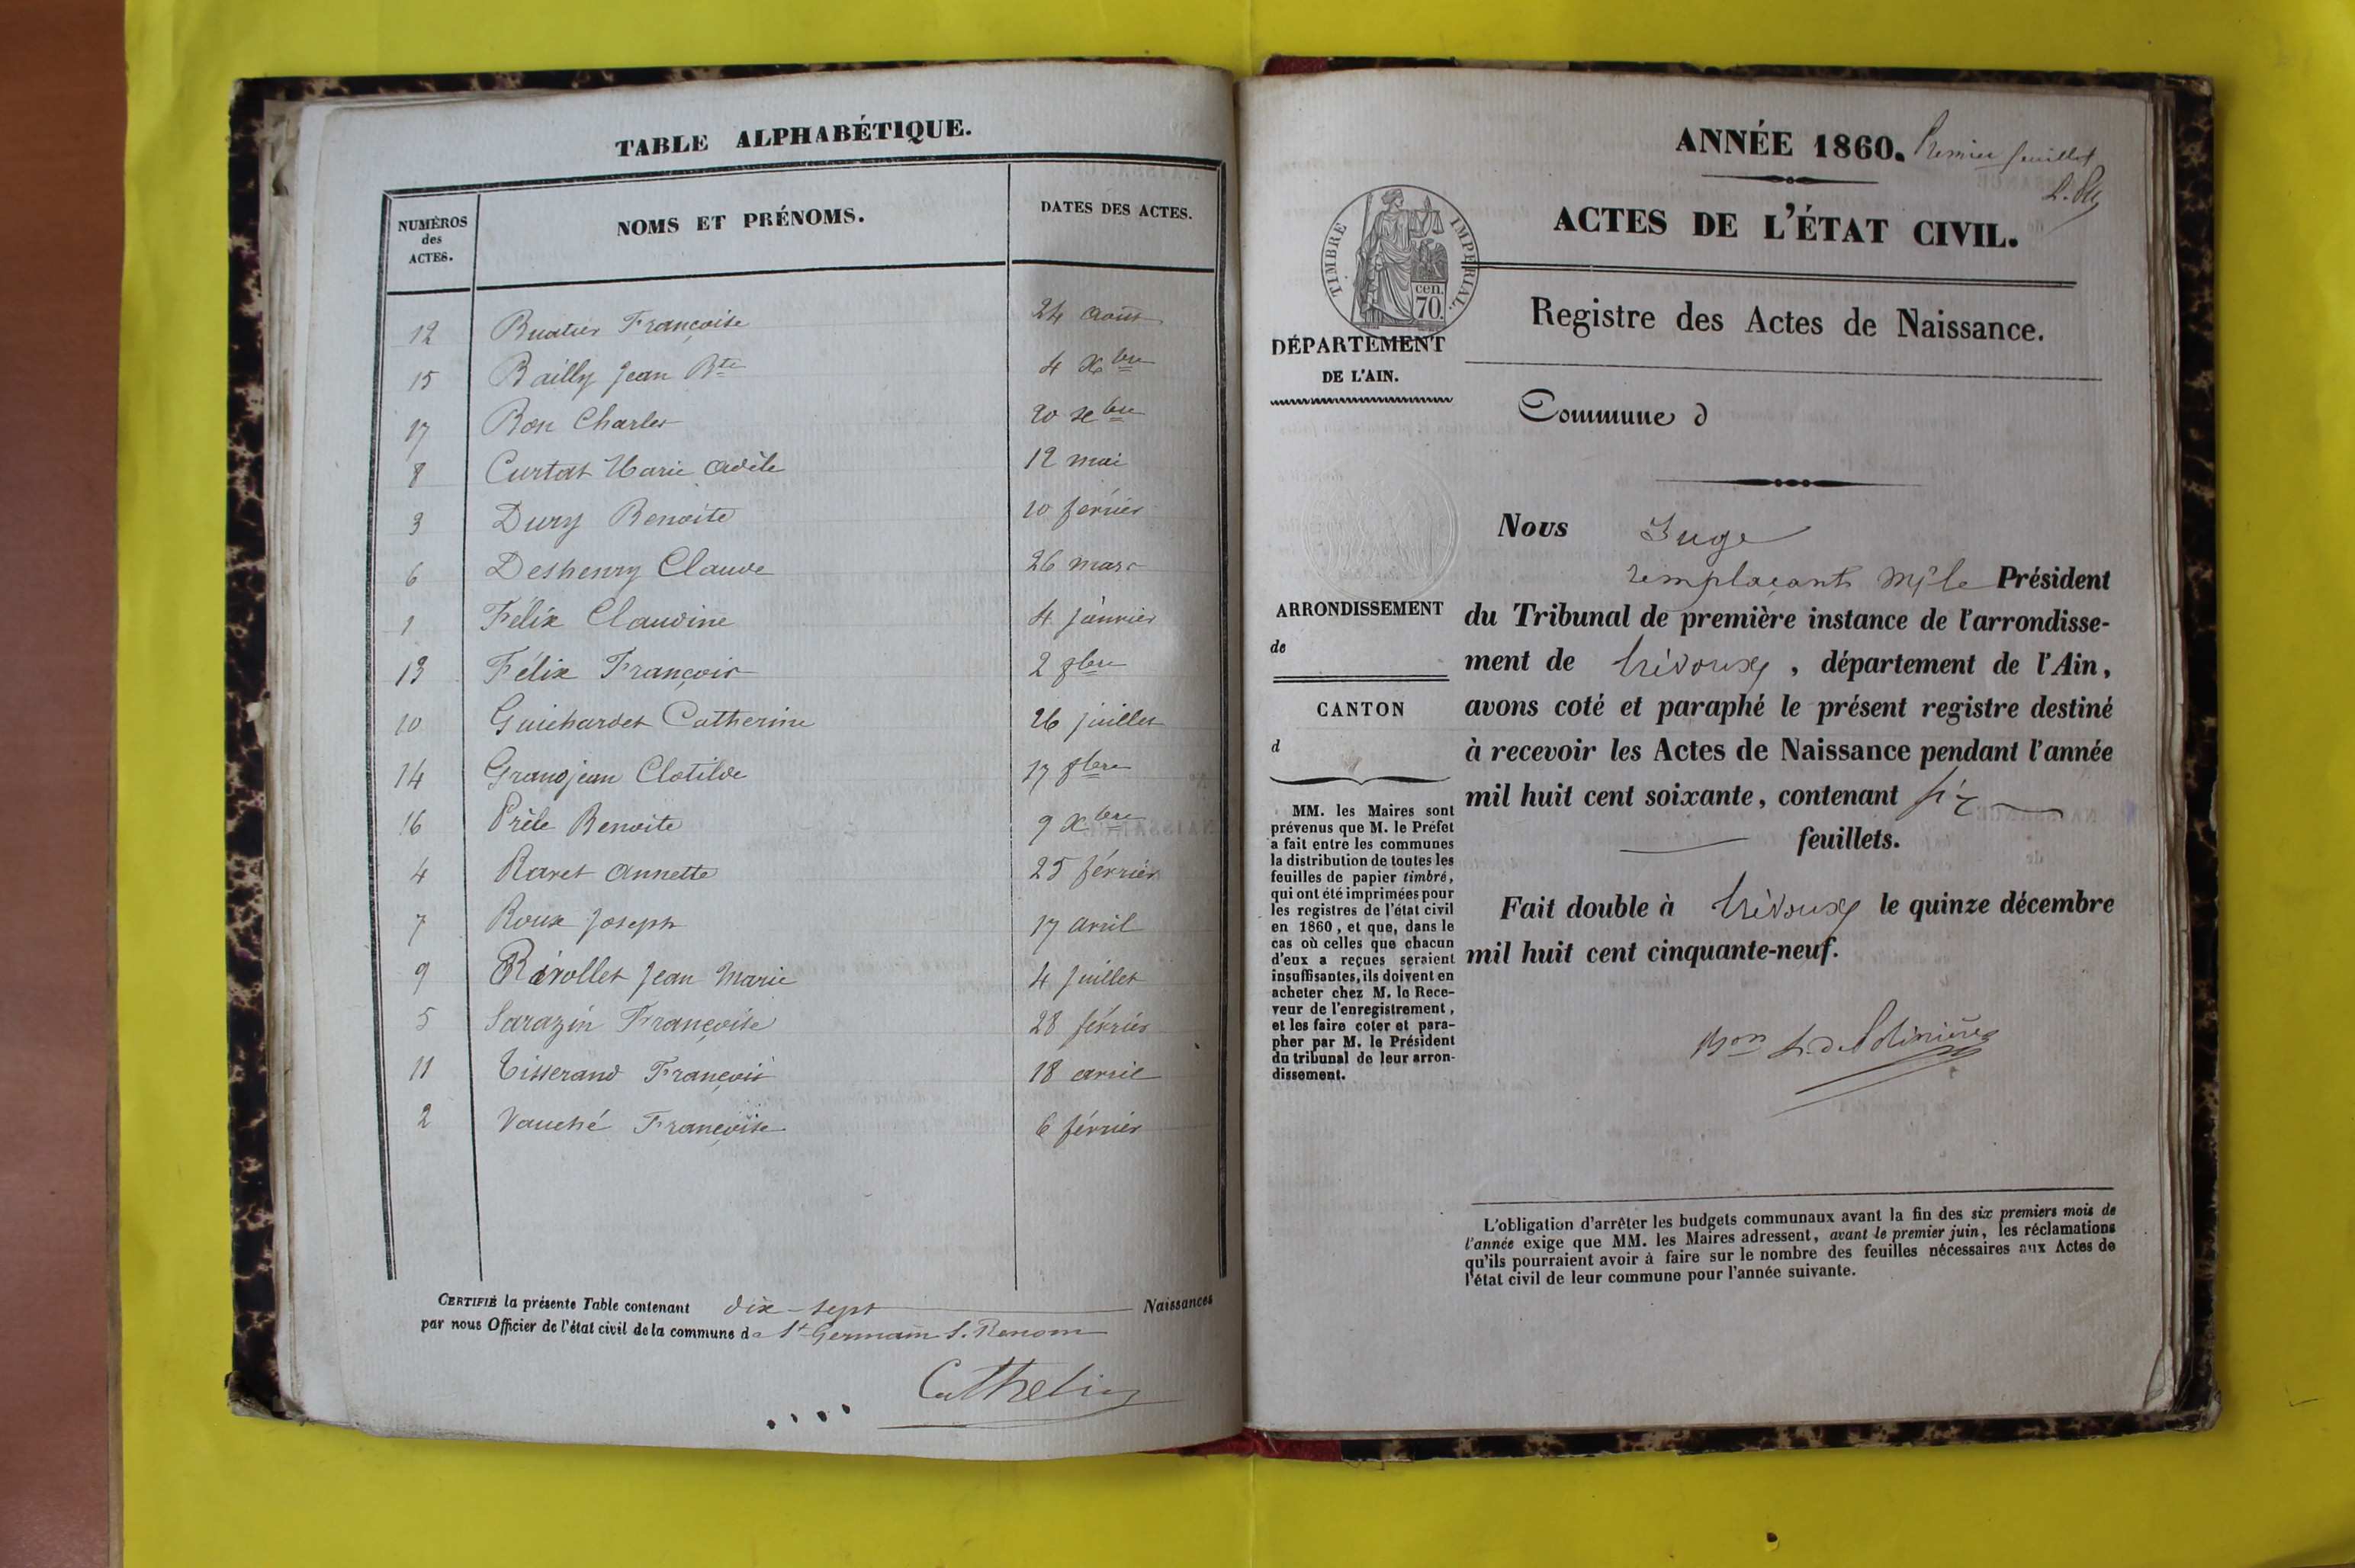 TABLE ALPHABÉTIQUE.
NUMÉROS des ACTES. NOMS ET PRÉNOMS. DATES DES ACTES.
12 Buatier Françoise 24 août
15 Bailly Jean Bte 4 Xbre
17 Bon Charles 20 xbre
8 Curtat Marie Adèle 12 mai
3 Dury Benoite 10 février
6 Deshenry Claude 26 mars
1 Félix Claudine 4 janvier
13 Félix François 2 9bre
10 Guichardet Catherine 26 juillet
14 Grandjean Clotilde 17 9bre
16 Prèle Benoite 9 Xbre
4 Ravet Annette 25 février
7 Roux Joseph 17 avril
9 Rivollet Jean Marie 4 juillet
5 Sarazin Françoise 28 février
11 Tisserand François 18 avril
2 Vauché Françoise 6 février
CERTIFIÉ la présente Table contenant dix-sept Naissances
par nous Officier de l'état civil de la commune de St Germain S. Renom
Cathelin
ANNÉE 1860. Premier feuillet
ACTES DE L'ÉTAT CIVIL.
TIMBRE IMPÉRIAL.
cen.
70.
Registre des Actes de Naissance.
DÉPARTEMENT
DE L'AIN.
Commune d
Nous Juge
remplaçant Mr le Président
du Tribunal de première instance de l'arrondisse-
ment de Trévoux, département de l'Ain,
avons coté et paraphé le présent registre destiné
à recevoir les Actes de Naissance pendant l'année
mil huit cent soixante, contenant six
feuillets.
Fait double à Trévoux le quinze décembre
mil huit cent cinquante-neuf.
ARRONDISSEMENT
de
CANTON
d
MM. les Maires sont
prévenus que M. le Préfet
a fait entre les communes
la distribution de toutes les
feuilles de papier timbré,
qui ont été imprimées pour
les registres de l'état civil
en 1860, et que, dans le
cas où celles que chacun
d'eux a reçues seraient
insuffisantes, ils doivent en
acheter chez M. le Rece-
veur de l'enregistrement,
et les faire coter et para-
pher par M. le Président
du tribunal de leur arron-
dissement.
L'obligation d'arrêter les budgets communaux avant la fin des six premiers mois de
l'année exige que MM. les Maires adressent, avant le premier juin, les réclamations
qu'ils pourraient avoir à faire sur le nombre des feuilles nécessaires aux Actes de
l'état civil de leur commune pour l'année suivante.